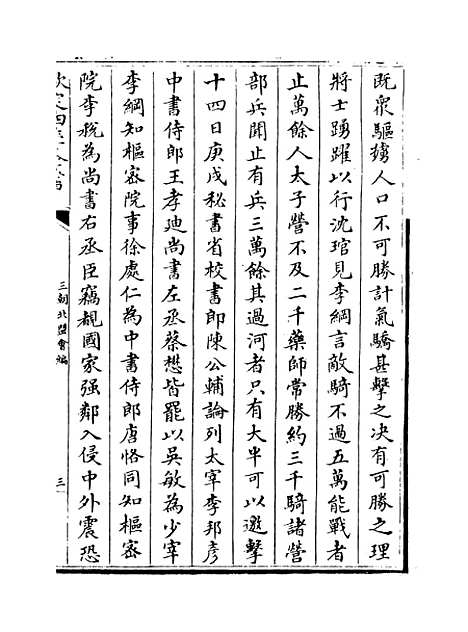 既衆驅擄人口不可勝計氣驕甚擊之决有可勝之理
將士踴躍以行沈琯見李綱言敵騎不過五萬能戰者
止萬餘人太子營不及二千藥師常勝約三千騎諸營
部兵聞止有兵三萬餘其過河者只有大半可以邀擊
十四日庚戌秘書省校書郎陳公輔論列太宰李邦彦
中書侍郎王孝迪尚書左丞蔡懋皆罷以吳敏為少宰
李綱知樞宻院事徐處仁為中書侍郎唐恪同知樞宻
院李梲為尚書右丞臣竊覩國家强鄰入侵中外震恐
三朝北盟會編
三